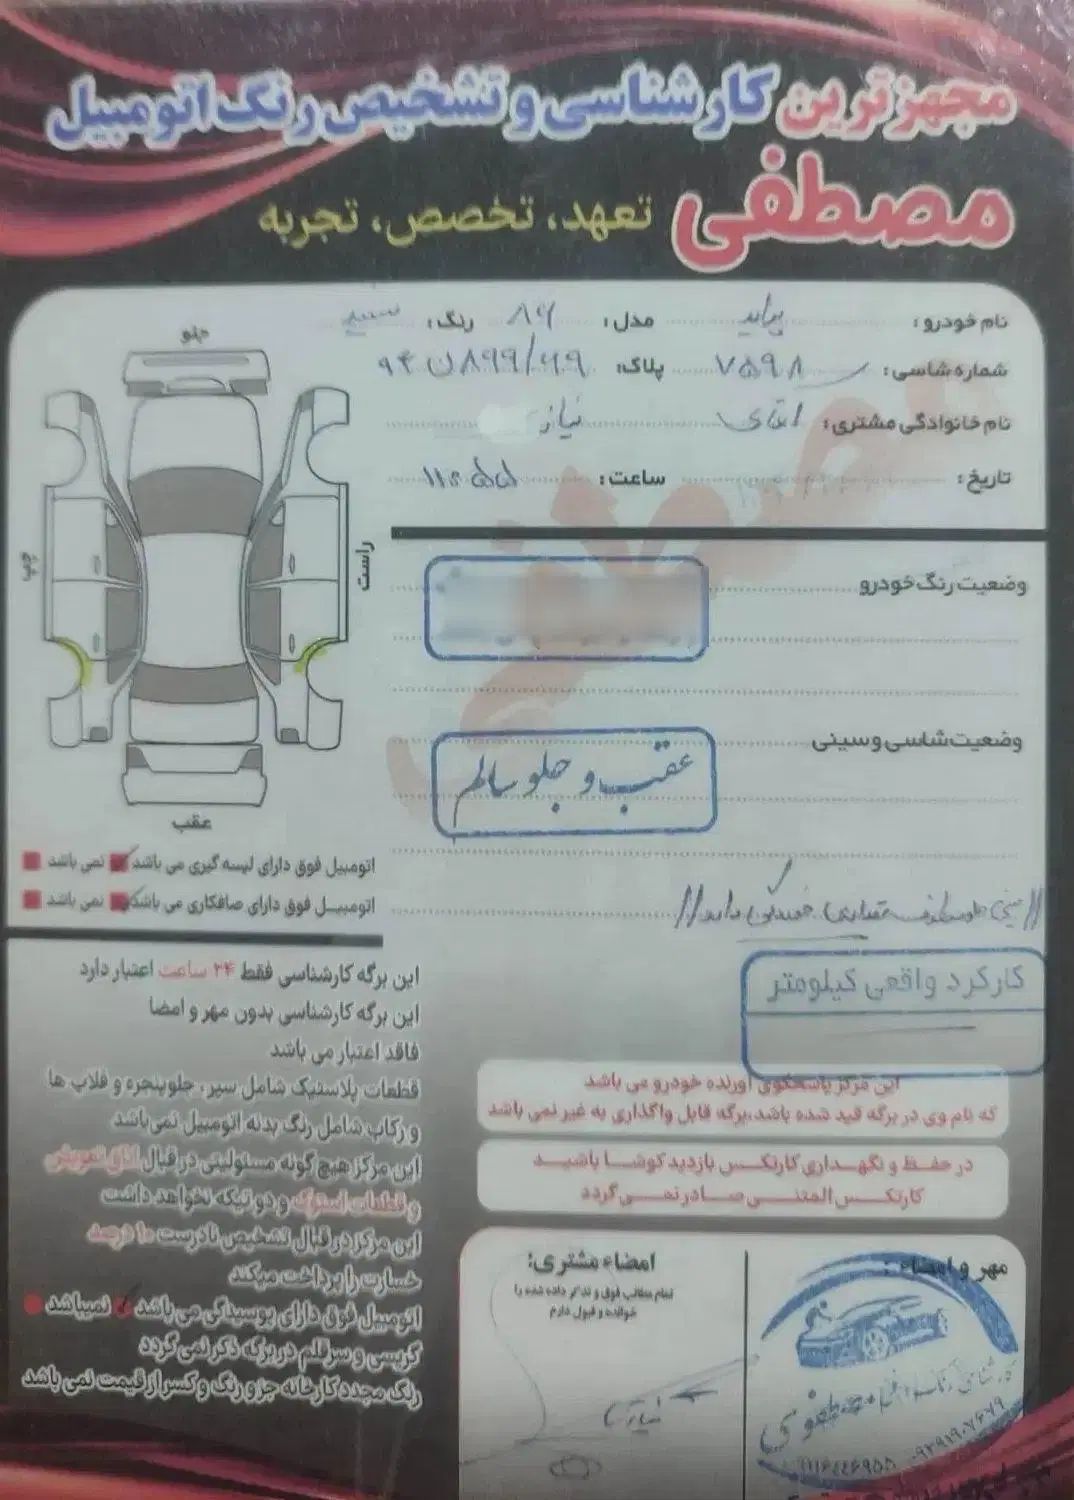 مجهزترین کارشناسی و تشخیص رنگ اتومبیل
مصطفی
تعهد، تخصص، تجربه
نام خودرو: پراید مدل: ۸۹ رنگ: سپید
شماره شاسی: ۷۵۹۸ پلاک:
نام خانوادگی مشتری: آقای نیازی
تاریخ: ساعت: ۱۱:۵۵
جلو
چپ
راست
عقب
وضعیت رنگ خودرو
وضعیت شاسی و سینی
عقب و جلو سالم
اتومبیل فوق دارای لیسه گیری می باشد نمی باشد
اتومبیل فوق دارای صافکاری می باشد نمی باشد
مقداری خوردگی دارد //
کارکرد واقعی کیلومتر
این برگه کارشناسی فقط ۲۴ ساعت اعتبار دارد
این برگه کارشناسی بدون مهر و امضا
فاقد اعتبار می باشد
قطعات پلاستیک شامل سپر، جلوپنجره و فلاپ ها
و رکاب شامل رنگ بدنه اتومبیل نمی باشد
این مرکز هیچ گونه مسئولیتی در قبال اتاق تعویض
و قطعات استوک و دو تیکه نخواهد داشت
این مرکز در قبال تشخیص نادرست ۱۰ درصد
خسارت را پرداخت میکند
اتومبیل فوق دارای پوسیدگی می باشد نمیباشد
گریسی و سرقلم در برگه ذکر نمی گردد
رنگ مجدد کارخانه جزو رنگ و کسر از قیمت نمی باشد
این مرکز پاسخگوی آورنده خودرو می باشد
که نام وی در برگه قید شده باشد، برگه قابل واگذاری به غیر نمی باشد
در حفظ و نگهداری کارتکس بازدید کوشا باشید
کارتکس المثنی صادر نمی گردد
مهر و امضاء:
امضاء مشتری:
تمام مطالب فوق و تذکر داده شده را
خوانده و قبول دارم
نیازی